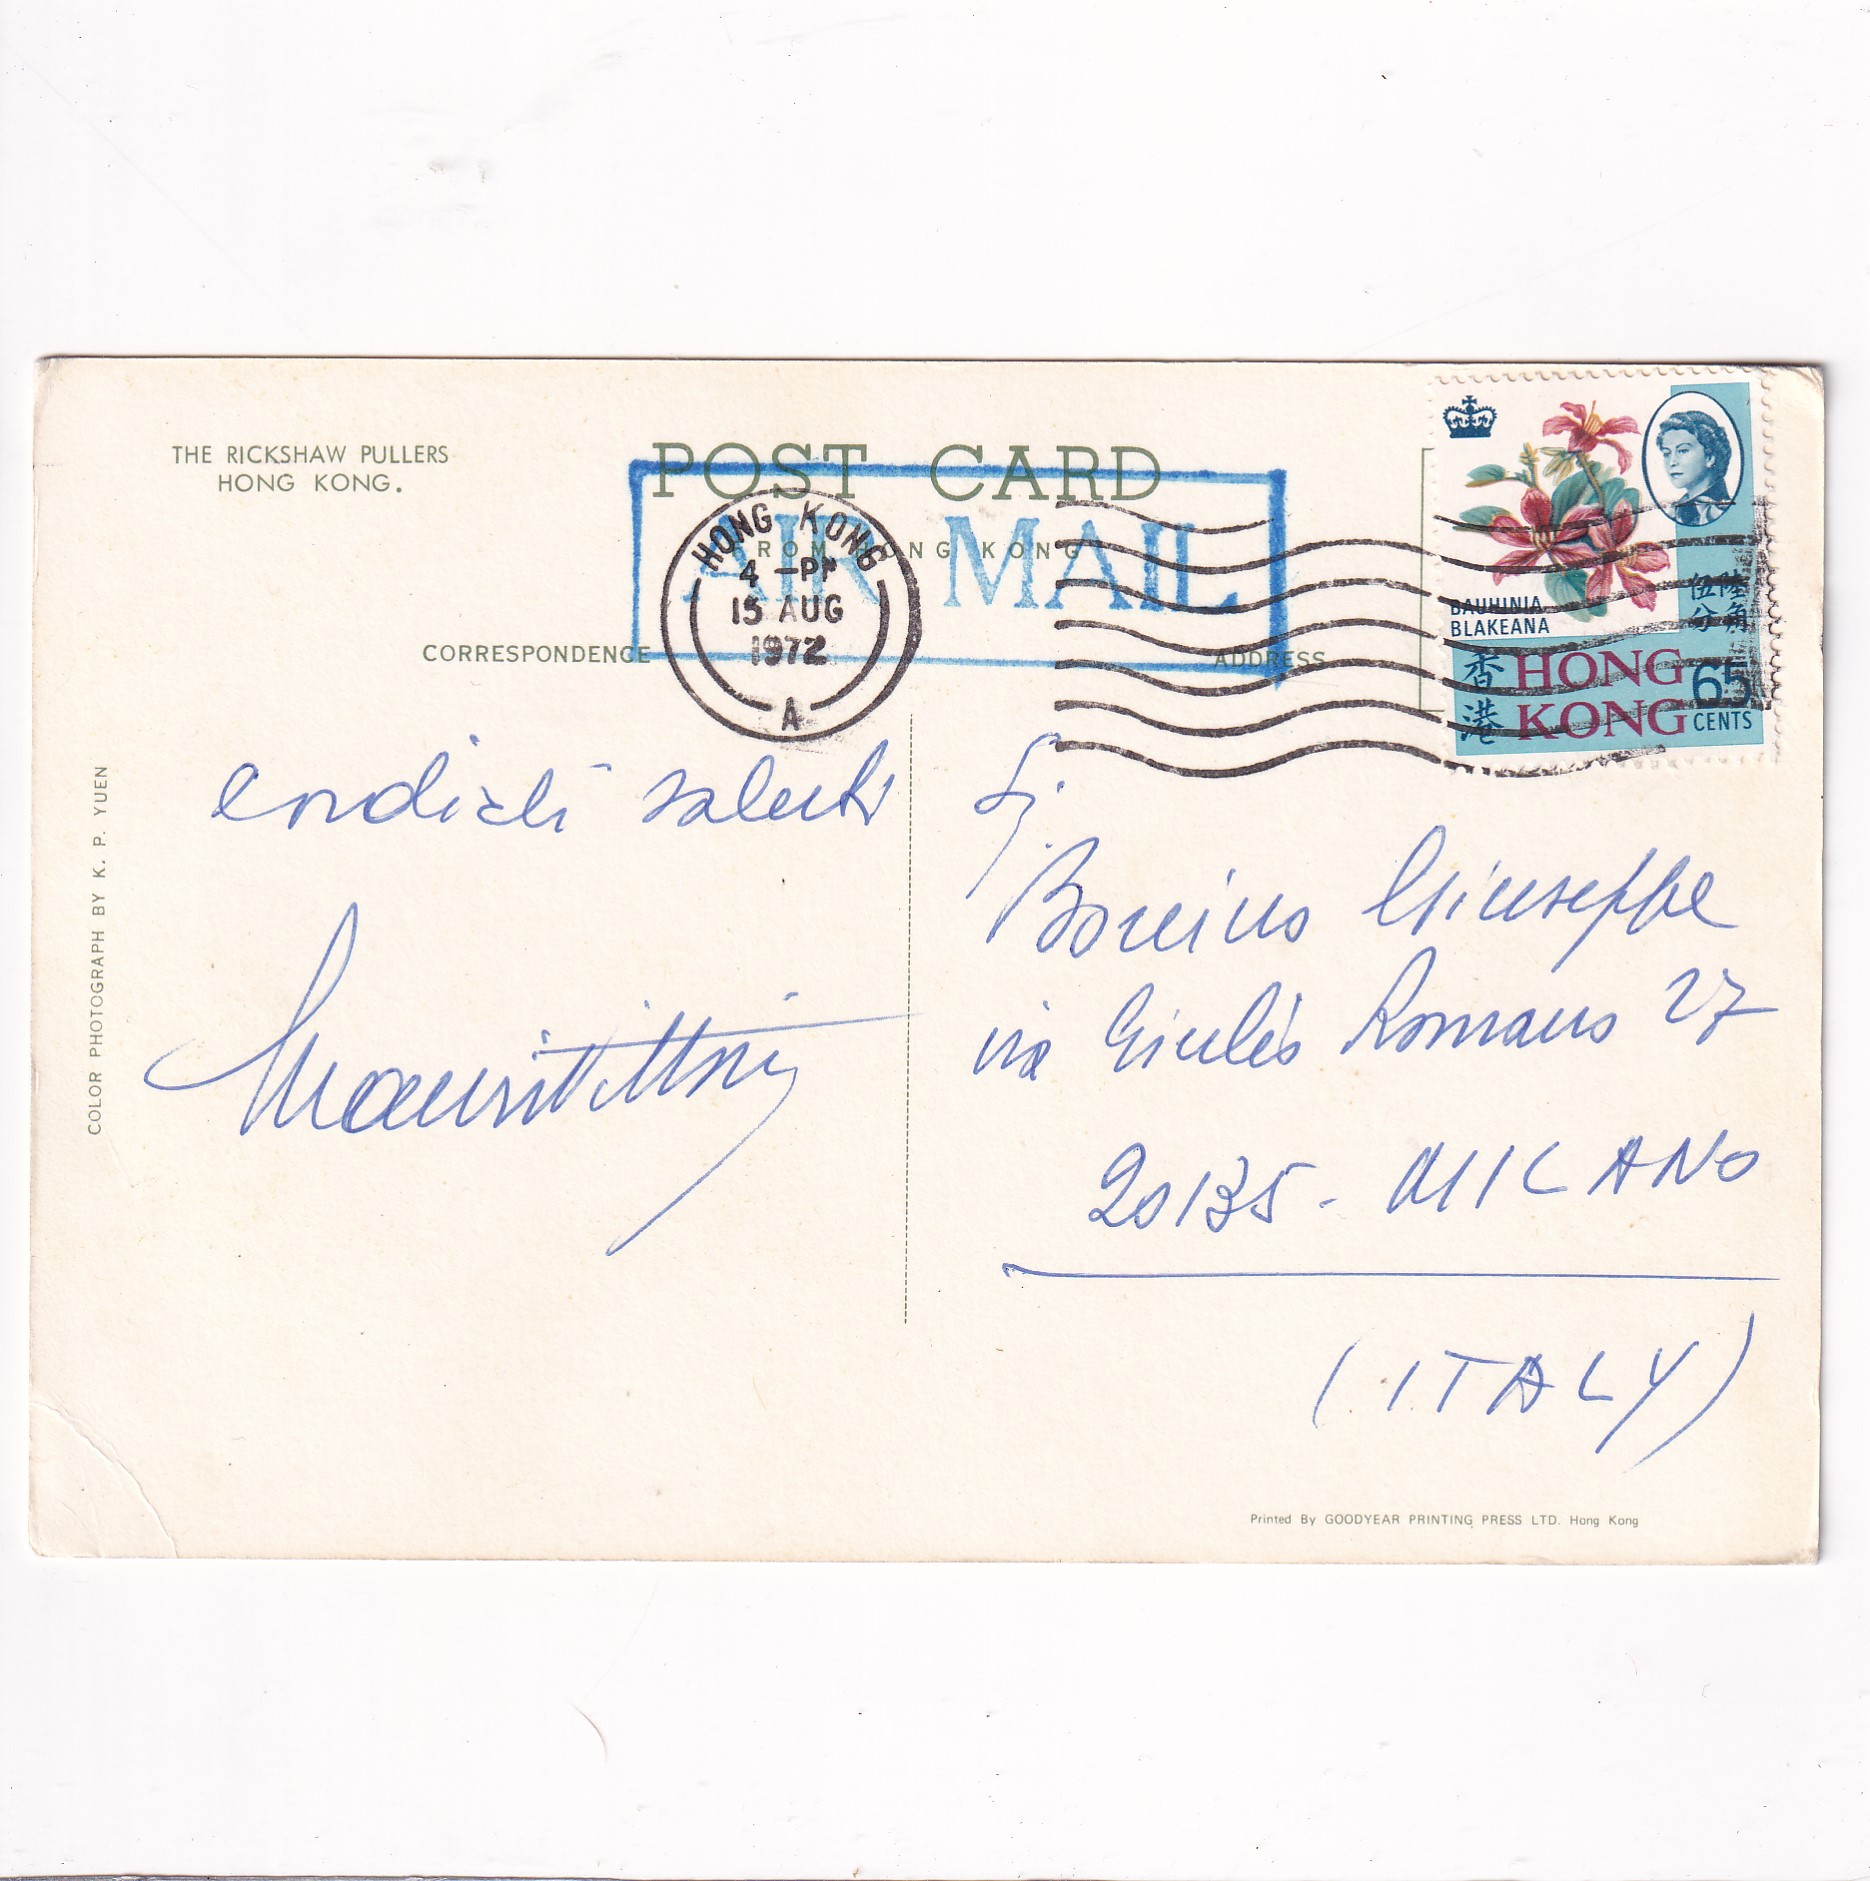 THE RICKSHAW PULLERS
HONG KONG.
POST CARD
FROM HONG KONG
AIR MAIL
HONG KONG
4 -PM
15 AUG
1972
A
CORRESPONDENCE
ADDRESS
BAUHINIA
BLAKEANA
陸角
伍分
香港
HONG
KONG
65
CENTS
COLOR PHOTOGRAPH BY K. P. YUEN
cordiali saluti
Giuseppe
via Giulio Romano 27
20135 - MILANO
(ITALY)
Printed By GOODYEAR PRINTING PRESS LTD. Hong Kong